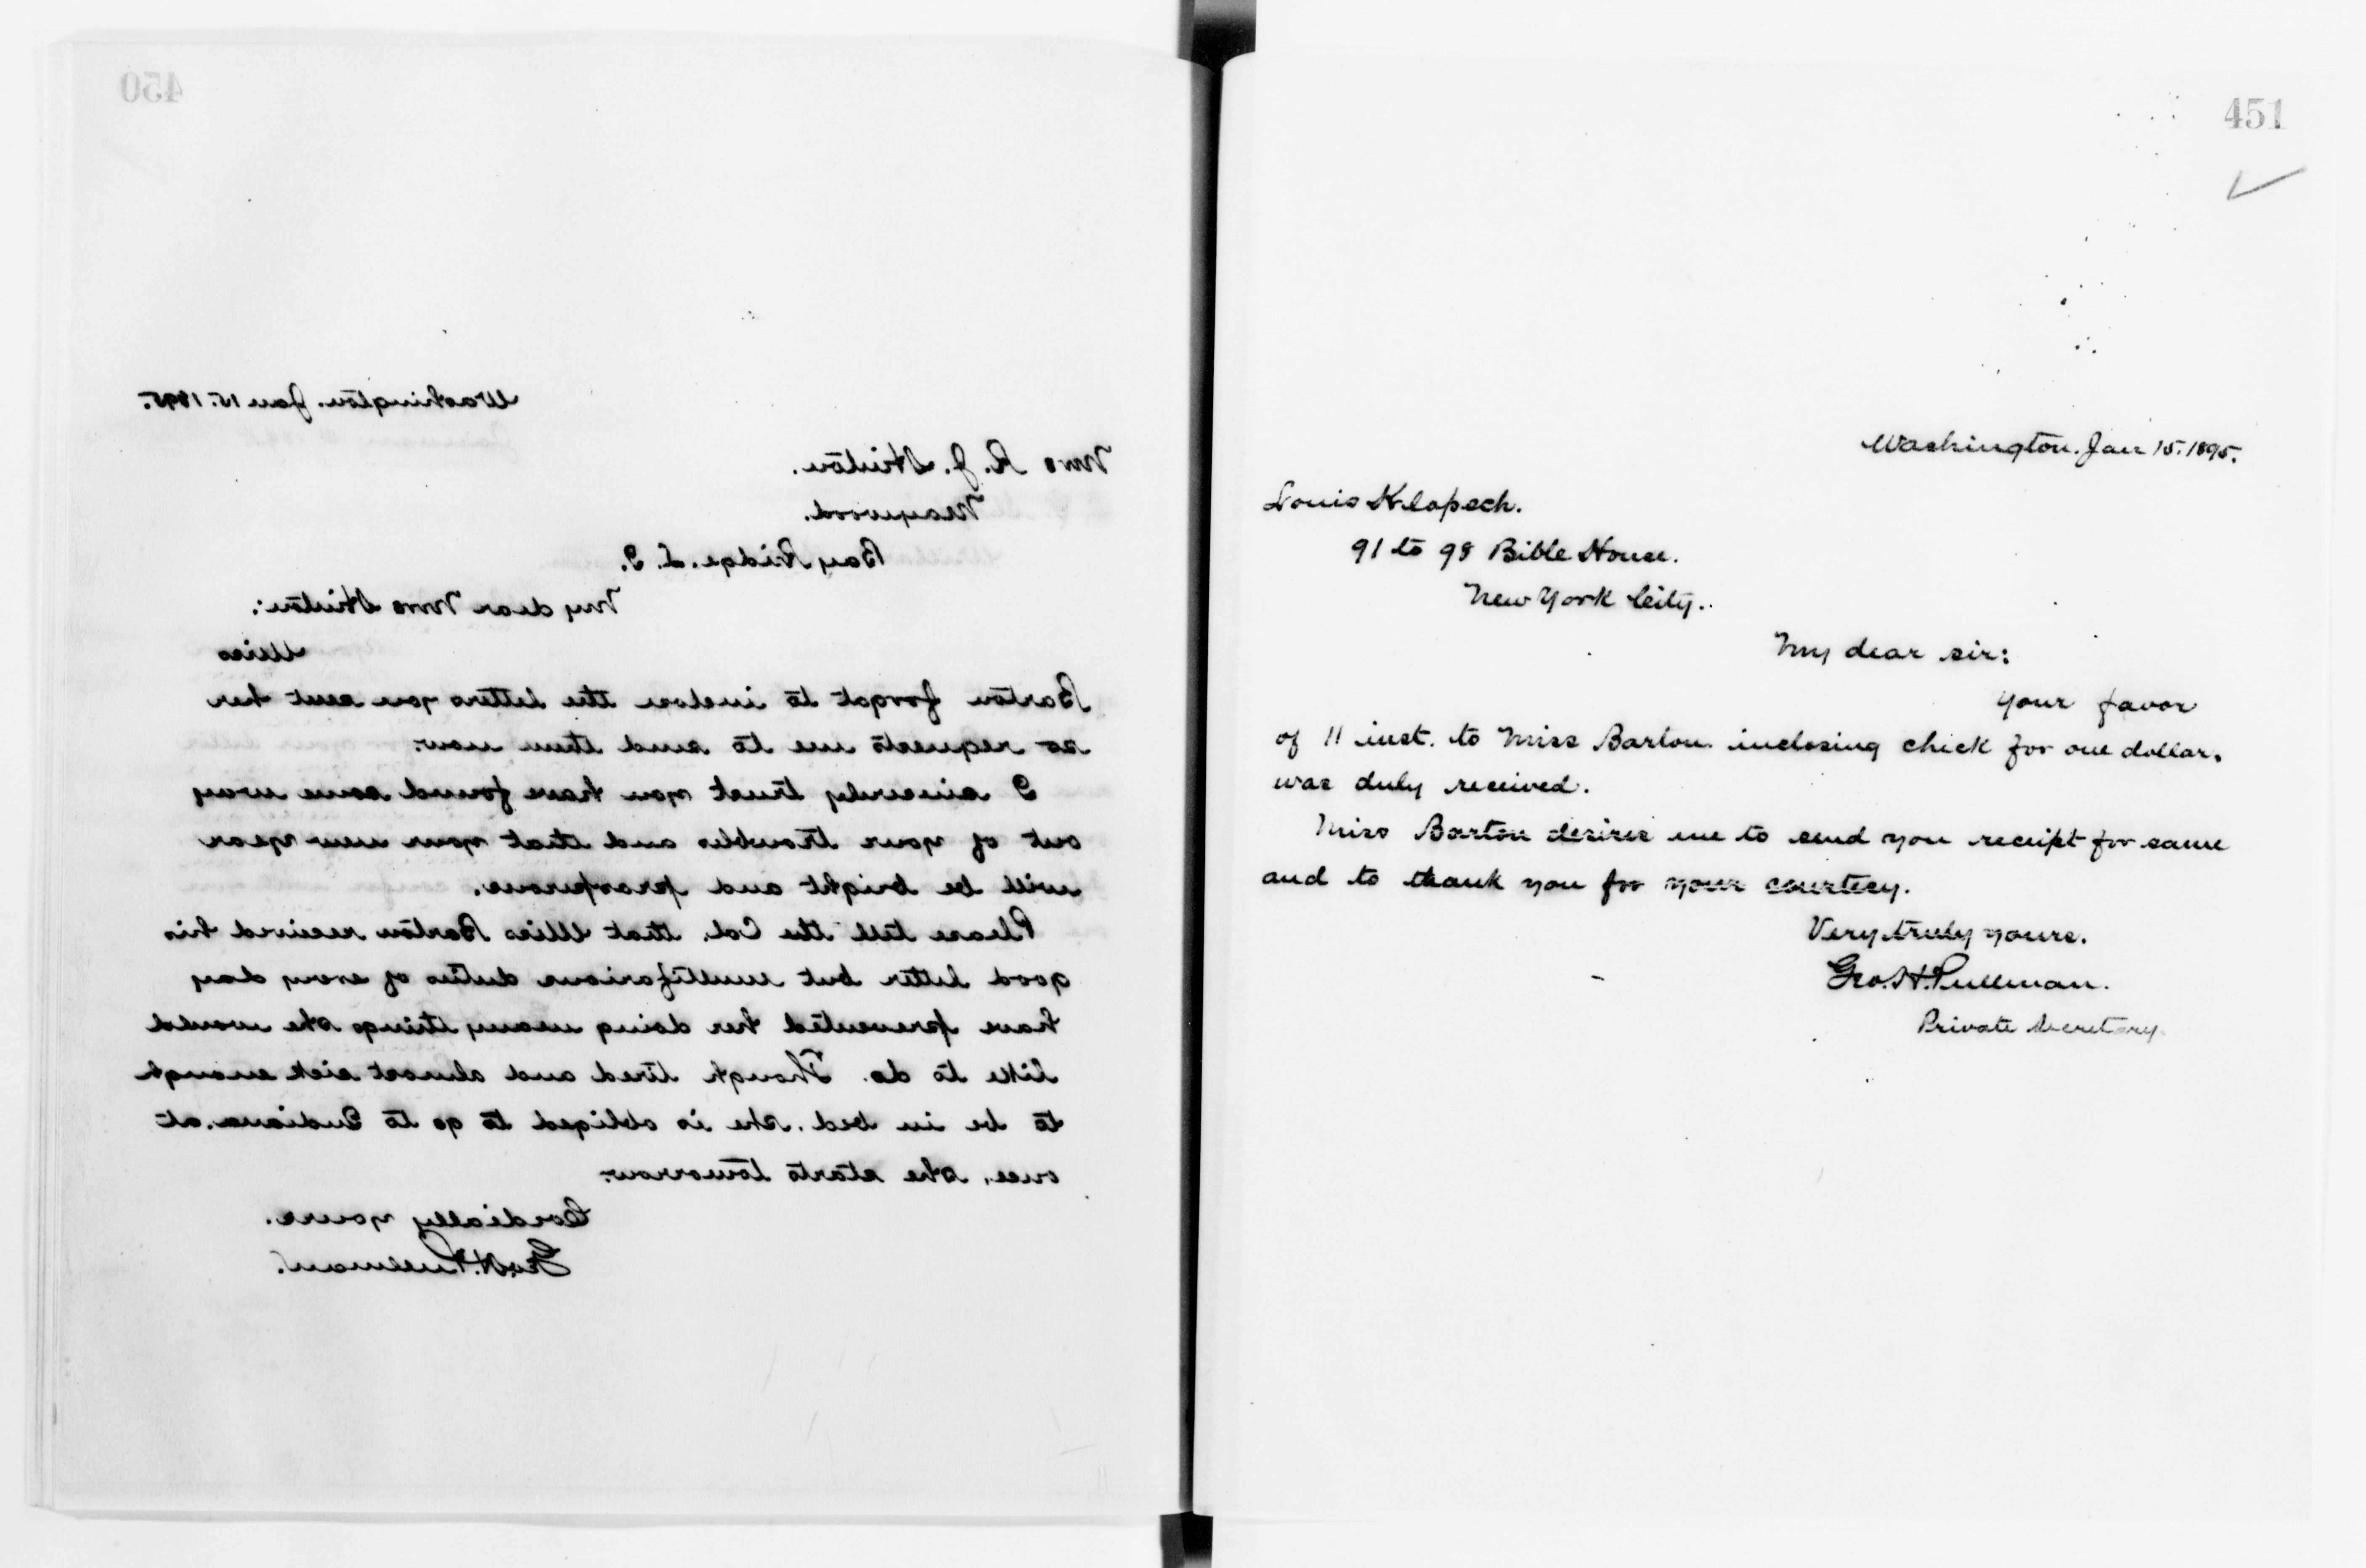 450
Washington. Jan 15. 1895.
Mrs R. J. Hinton.
Maywood.
Bay Ridge. L. I.
My dear Mrs Hinton:
Miss
Barton forgot to inclose the letters you sent her
so requests me to send them now.
I sincerely trust you have found some way
out of your troubles and that your new year
will be bright and prosperous.
Please tell the Col. that Miss Barton received his
good letter but multifarious duties of every day
have prevented her doing many things she would
like to do. Though tired and almost sick enough
to be in bed, she is obliged to go to Indiana at
once, she starts tomorrow.
Cordially yours.
Geo. H. Pullman.
451
Washington. Jan 15. 1895.
Louis Klopsch.
91 to 98 Bible House.
New York City.
My dear sir:
Your favor
of 11 inst. to Miss Barton inclosing check for one dollar,
was duly received.
Miss Barton desires me to send you receipt for same
and to thank you for your courtesy.
Very truly yours.
Geo. H. Pullman.
Private Secretary.